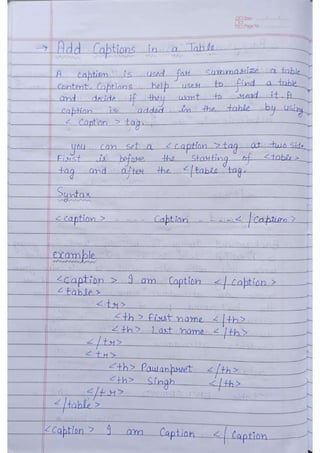 → Add Captions in a Table
A caption is used for summarize a table
content. Captions help user to find a table
and decide if they want to read it. A
caption is added in the table by using
< Caption > tag.
you can set a < caption > tag at two side.
First is before the starting of <table>
tag and after the </table tag.
Syntax
< caption > - - - - Caption - - - - < / Caption >
example
<caption > I am Caption </ caption >
< table >
< tr >
< th > first name < / th >
< th > Last name < / th >
< / tr >
< tr >
<th> Pawanpreet </th>
<th> Singh </th>
</tr>
</table >
<caption > I am Caption </ Caption